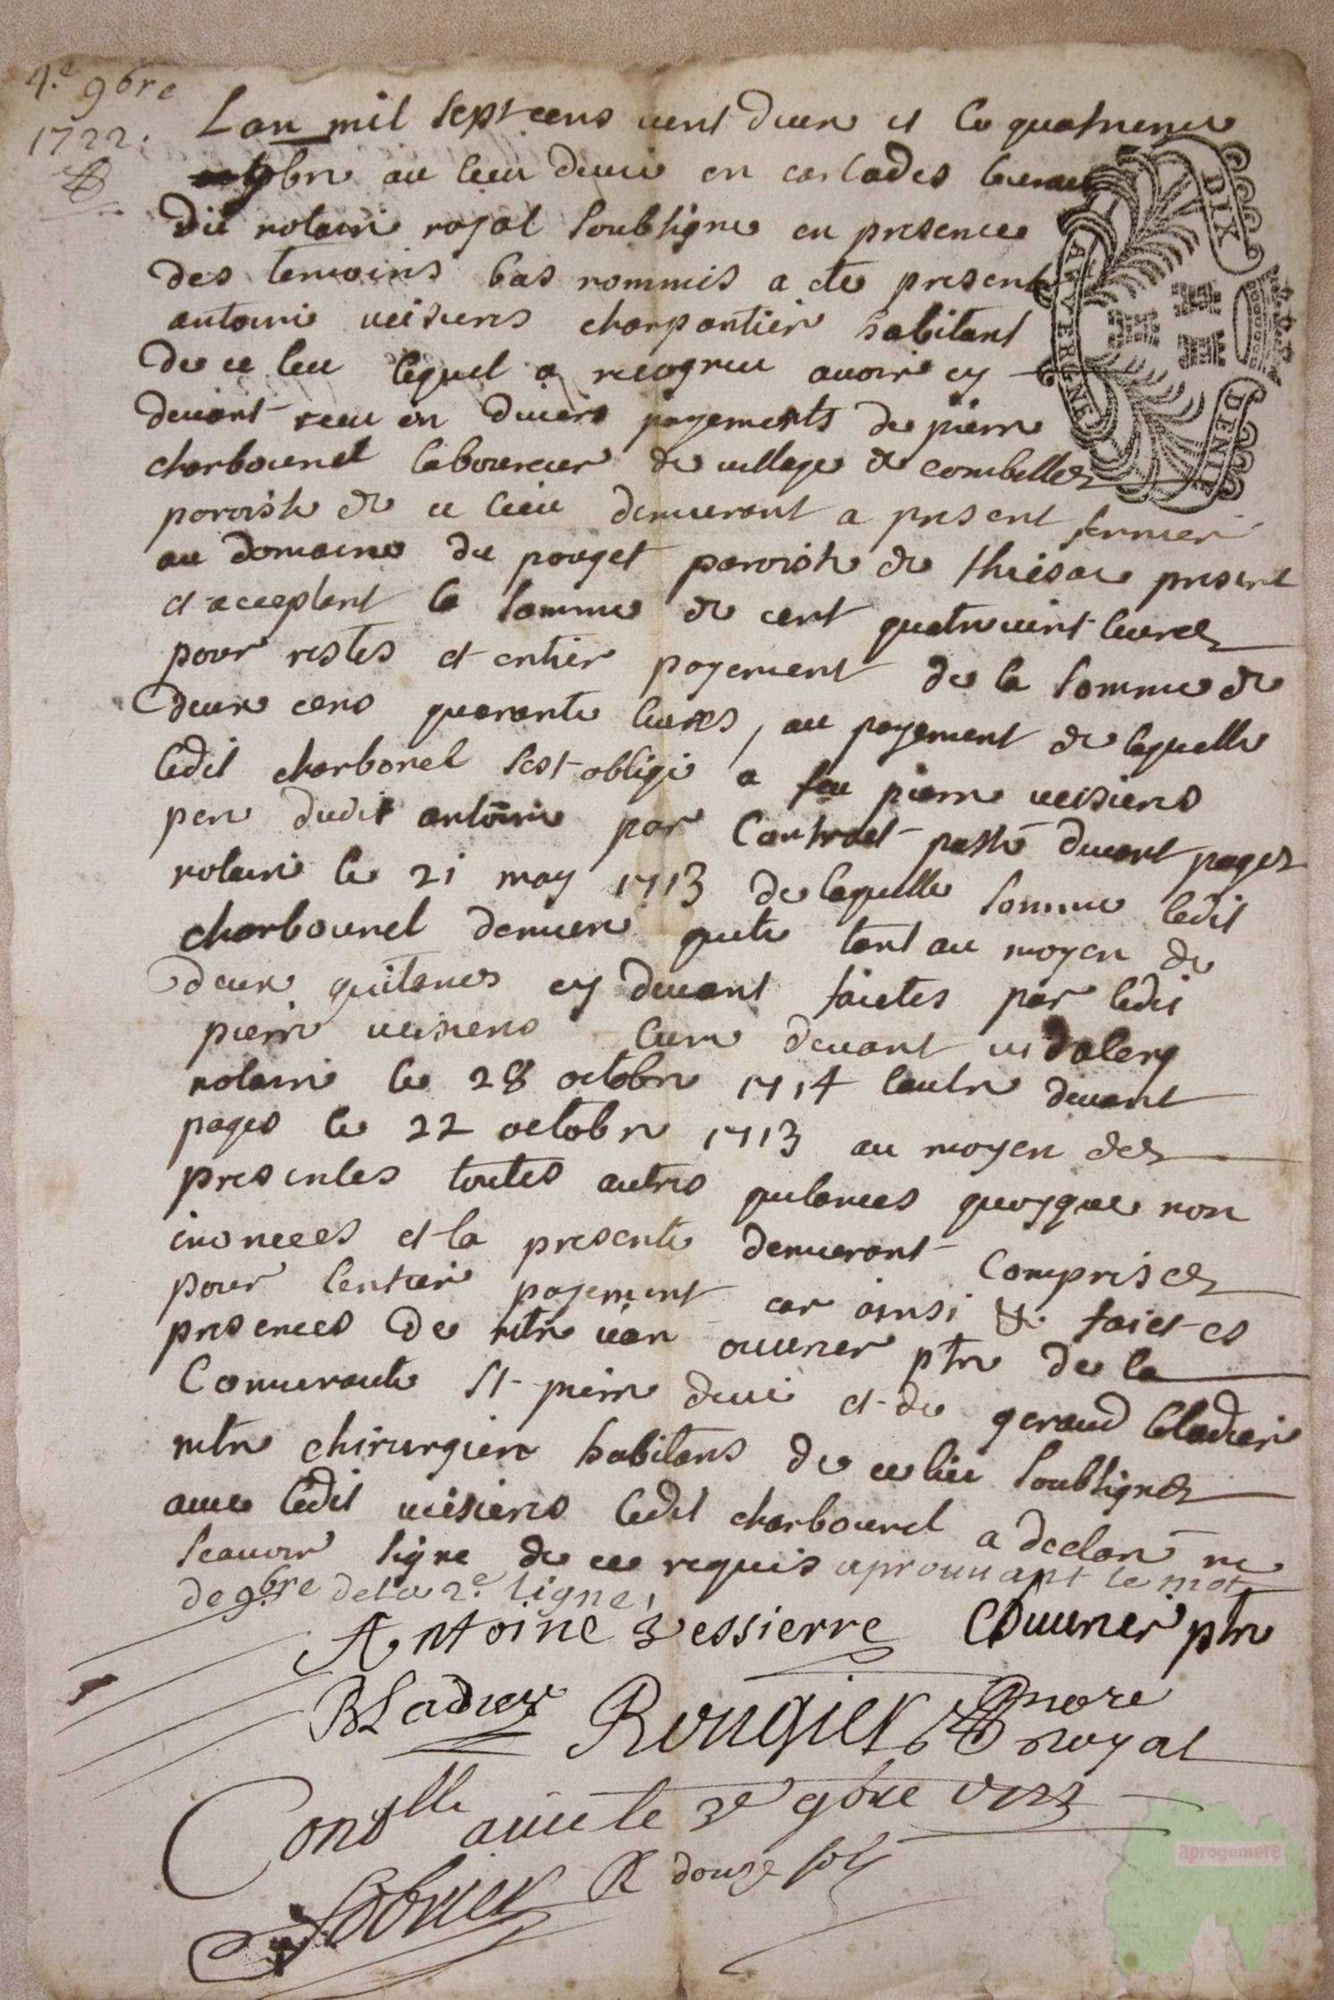 4.e 9bre
1722.
Lan mil sept cens vent deux et le quatrieme
9bre au lieu de vic en carlades
dit notaire royal soubsigne en presence
des temoins bas nommes a ete present
antoine veisiers charpantier habitant
de ce lieu lequel a recogneu avoir cy
devant receu en divers payements de pierre
charbounel laboureur de village de combelles
paroisse de ce lieu demeurant a present fermier
au domaine du pouget paroisse de thiesac present
et acceptant la somme de cent quatrevint livres
pour restes et entier payement de la somme de
deux cens quarante livres, au payement de laquelle
ledit charbonel sest obligé a feu pierre veisiers
pere dudit antoine par contract passé devant pages
notaire le 21 may 1713 de laquelle somme ledit
charbounel demeure quite tant au moyen de
deux quitances cy devant faictes par ledit
pierre veisiers lune devant vidaleng
notaire le 28 octobre 1714 lautre devant
pages le 22 octobre 1713 au moyen des
presentes toutes autres quitances quoyque non
enoncees et la presente demeurant comprises
pour lentier payement car ainsi &c. faict es
presences de mtre ouvrier ptre de la
Comunaute St pierre de vic et de geraud bladier
mtre chirurgien habitans de ce lieu soubsignes
avec ledit veisieres ledit charbounel a declaré ne
scavoir signe de ce requis aprouvant le mot
de 9bre de la 2e ligne,
Antoine Vessierre Ouvrier ptre
Bladier Rongier nore
royal
Cont.lle a vic le 3e 9bre 1722
R douze sols
Sobrier
DIX
DENIE
AUVERGNE
aprogemere